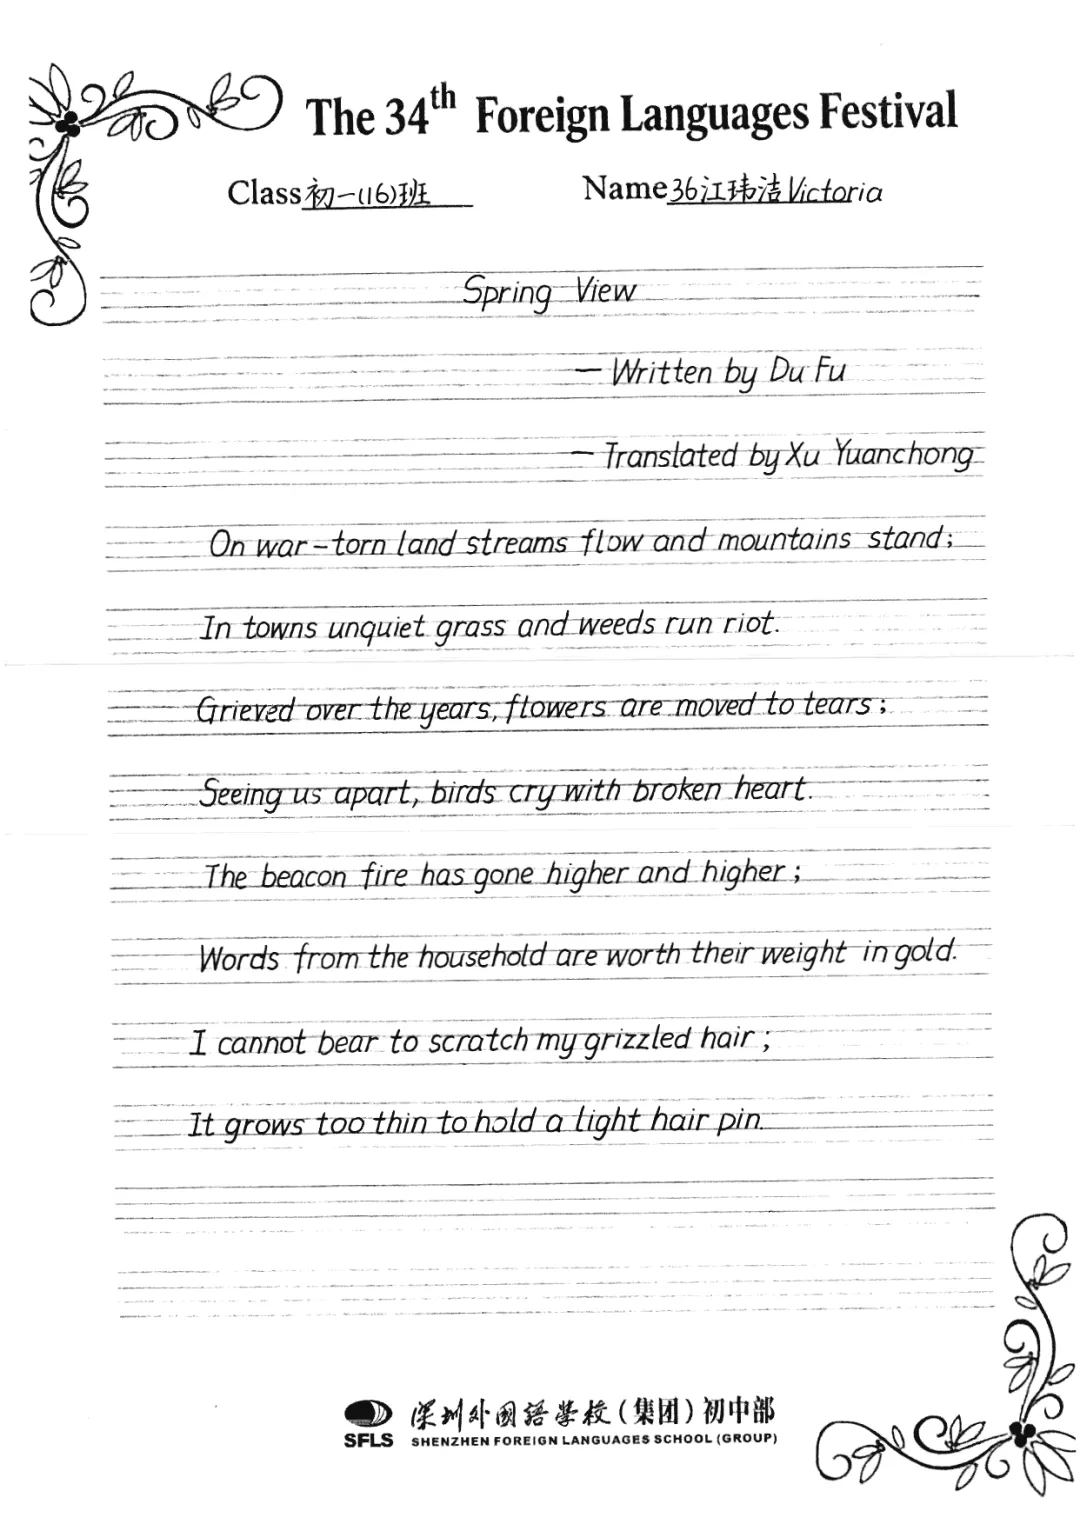 The 34th Foreign Languages Festival
Class初一(16)班 Name36江玮洁Victoria
Spring View
— Written by Du Fu
— Translated by Xu Yuanchong
On war-torn land streams flow and mountains stand;
In towns unquiet grass and weeds run riot.
Grieved over the years, flowers are moved to tears;
Seeing us apart, birds cry with broken heart.
The beacon fire has gone higher and higher;
Words from the household are worth their weight in gold.
I cannot bear to scratch my grizzled hair;
It grows too thin to hold a light hair pin.
深圳外國語學校(集团)初中部
SFLS SHENZHEN FOREIGN LANGUAGES SCHOOL (GROUP)